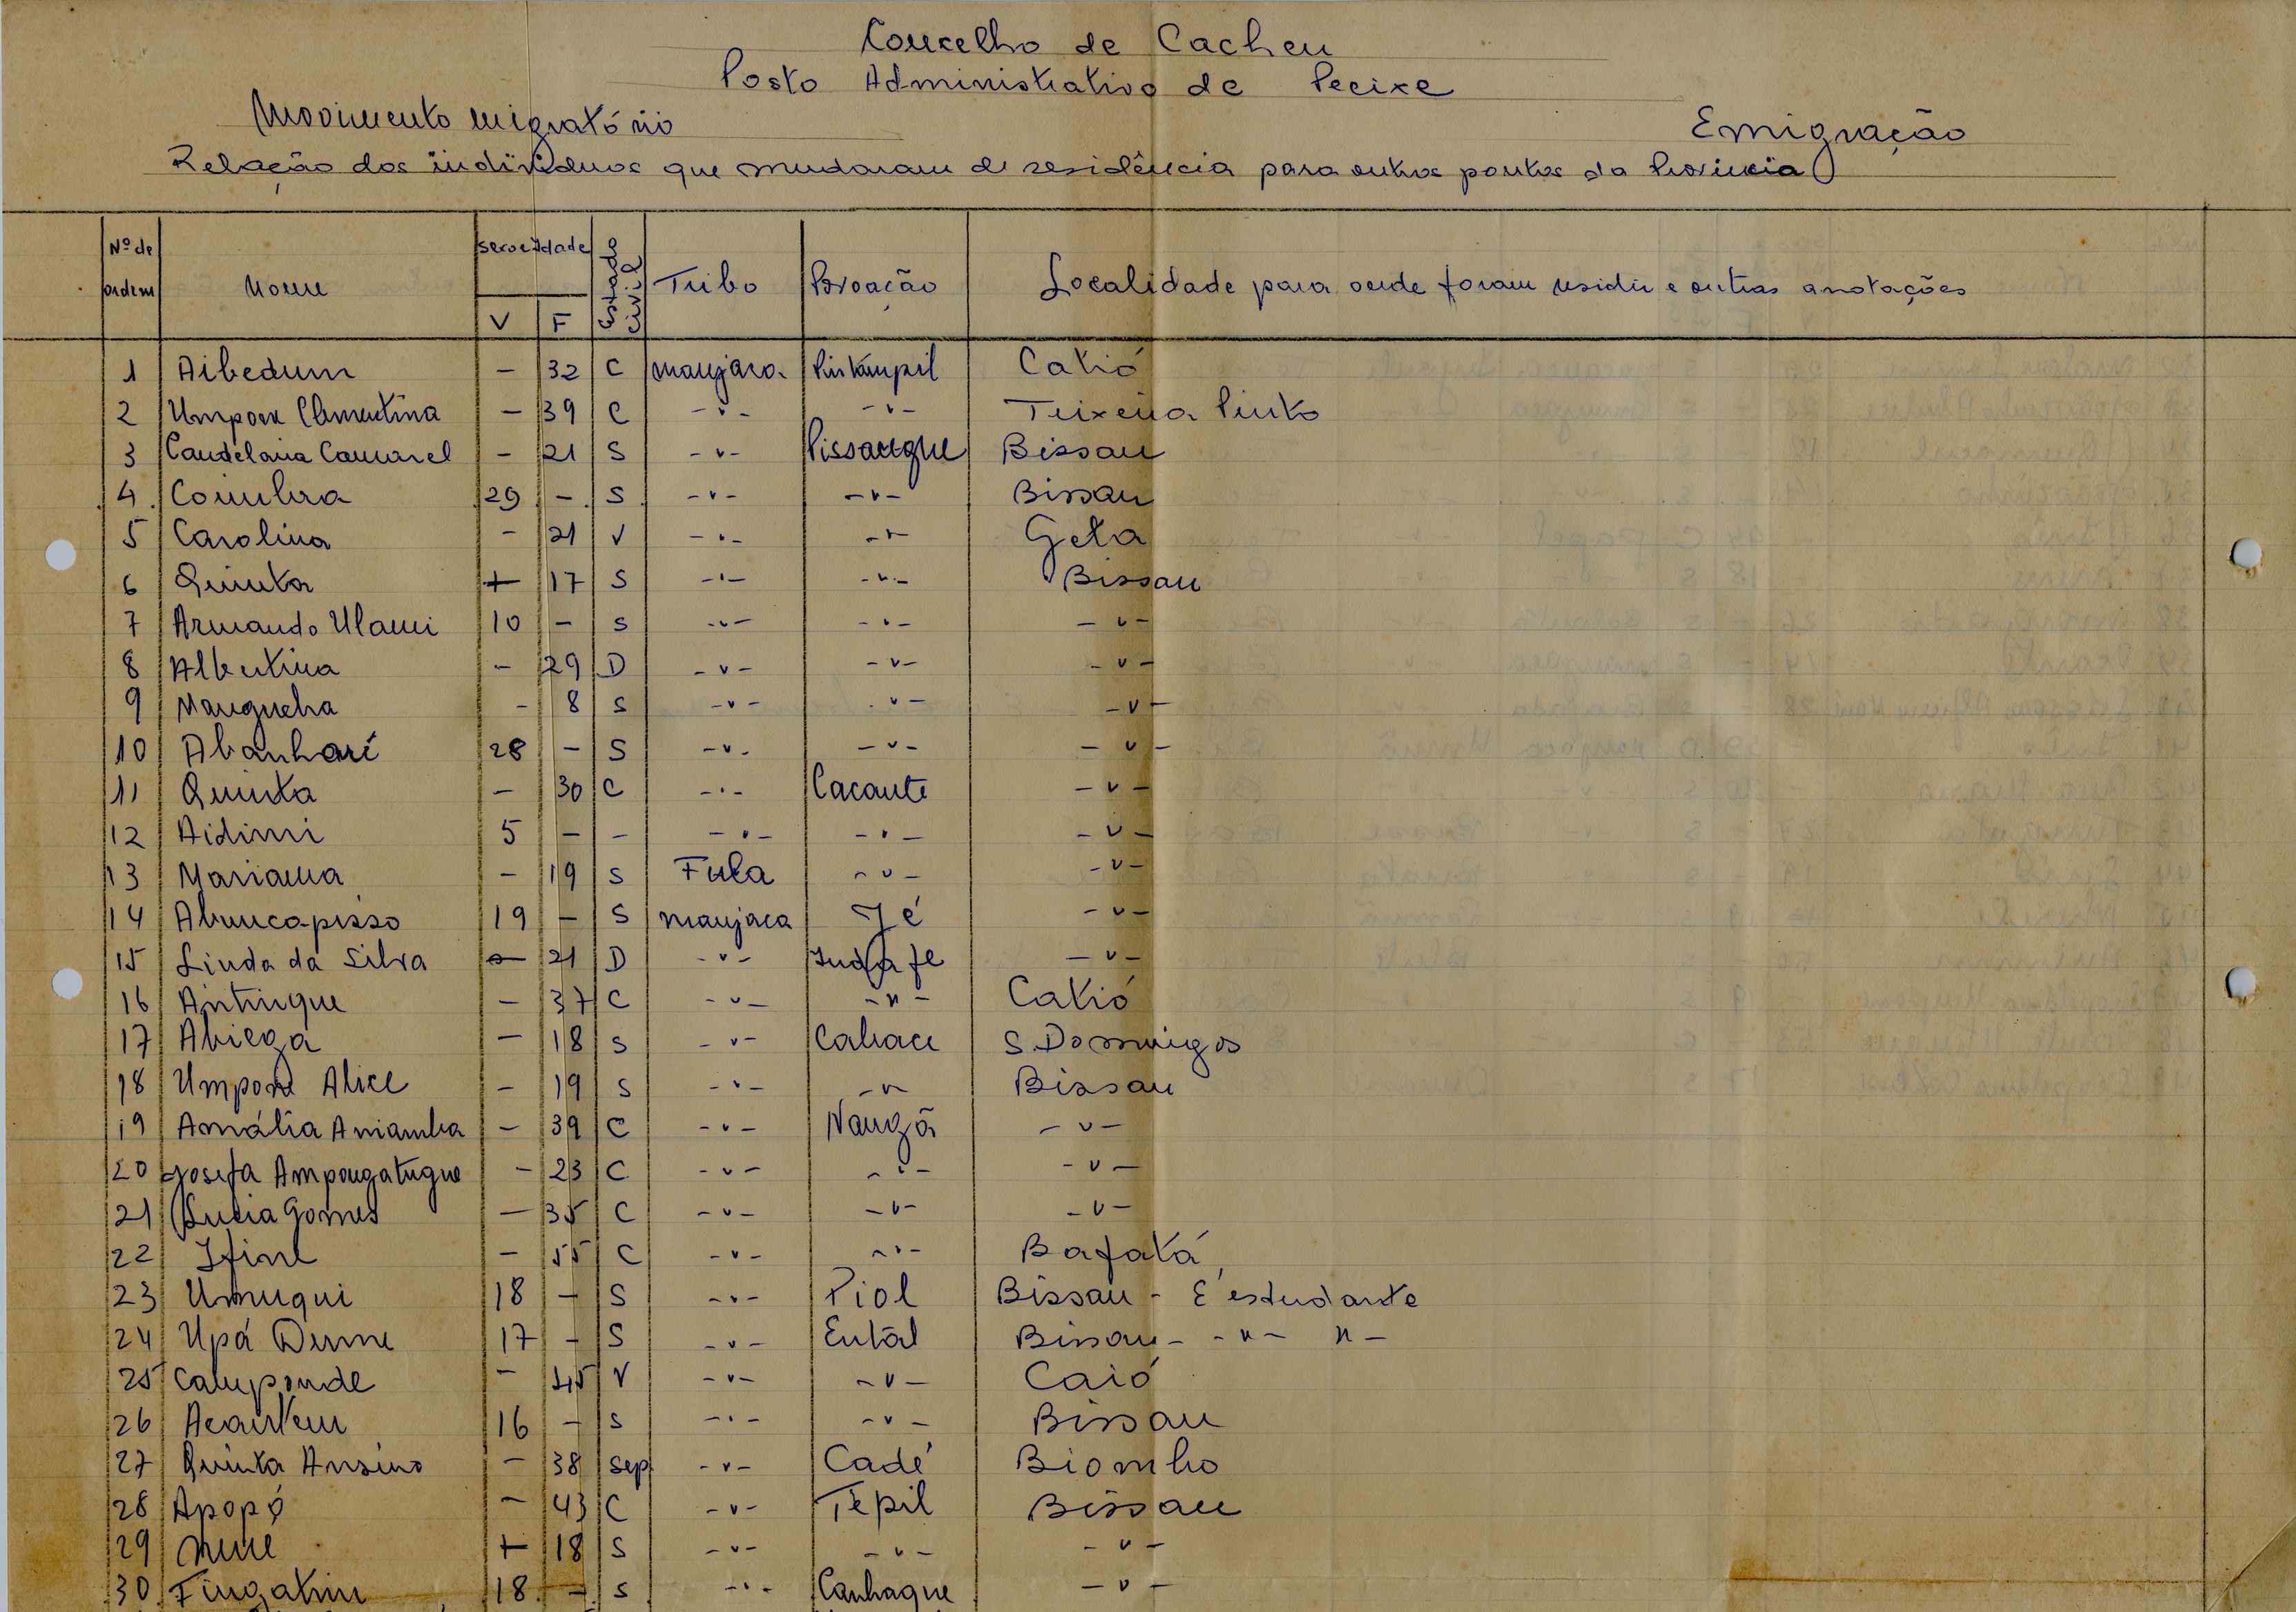 Concelho de Cacheu
Posto Administrativo de Pecixe
Movimento migratório
Emigração
Relação dos indivíduos que mudaram de residência para outros pontos da Província
Nº de ordem Nome sexo e Idade V F Estado civil Tribo Povoação Localidade para onde foram residir e outras anotações
1 Aibedum - 32 C manjaca Catió
2 Umpora Clementina - 39 C -v- -v- Teixeira Pinto
3 Candelaria Camarel - 21 S -v- Pissangue Bissau
4 Coimbra 29 - S -v- -v- Bissau
5 Carolina - 21 V -v- -v- Geta
6 Quinta - 17 S -v- -v- Bissau
7 Armando Ulami 10 - S -v- -v- -v-
8 Albertina - 29 D -v- -v- -v-
9 Manguelha - 8 S -v- -v- -v-
10 Abanhari 28 - S -v- -v- -v-
11 Quinta - 30 C -v- Cacante -v-
12 Aidimi 5 - - -v- -v- -v-
13 Mariama - 19 S Fula -v- -v-
14 19 - S manjaca Jé -v-
15 Linda da Silva - 21 D -v- -v-
16 Antuigue - 37 C -v- -"- Catió
17 Abiega - 18 S -v- Cabace S. Domingos
18 Umpora Alice - 19 S -v- -v- Bissau
19 Amália Aniamba - 39 C -v- Nangã -v-
20 Josefa Ampongatugue - 23 C -v- -v- -v-
21 Lucia Gomes - 35 C -v- -v- -v-
22 Ifine - 55 C -v- -v- Bafatá
23 Umuqui 18 - S -v- Piol Bissau - É estudante
24 Upá Dume 17 - S -v- Entál Bissau - -"- "-
25 Camponde - 45 V -v- -v- Caió
26 Acantem 16 - S -v- -v- Bissau
27 Quinta Ansino - 38 Sep -v- Cadé Biombo
28 Apopó - 43 C -v- Tépil Bissau
29 - 18 S -v- -v- -v-
30 Fingatim 18 - S -v- Canhaque -v-